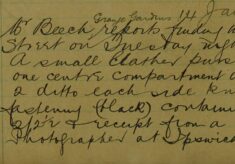 Grange Gardens 14 Jan
Mr Beech, reports finding a
Street on Tuesday night
A small leather purs
one centre compartment a
2 ditto each side kn
fastening (black) contain
2/2½ & receipt from a
Photographer at Ipswich